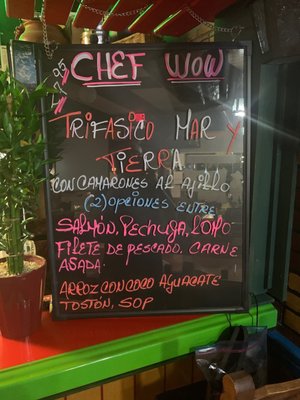 CHEF WOW
TRIFASICO MAR Y
TIERRA
CON CAMARONES AL AJILLO
(2) OPCIONES ENTRE
SALMÓN, PECHUGA, LOMO
FILETE DE PESCADO, CARNE
ASADA
ARROZ CON COCO AGUACATE
TOSTÓN, SOP